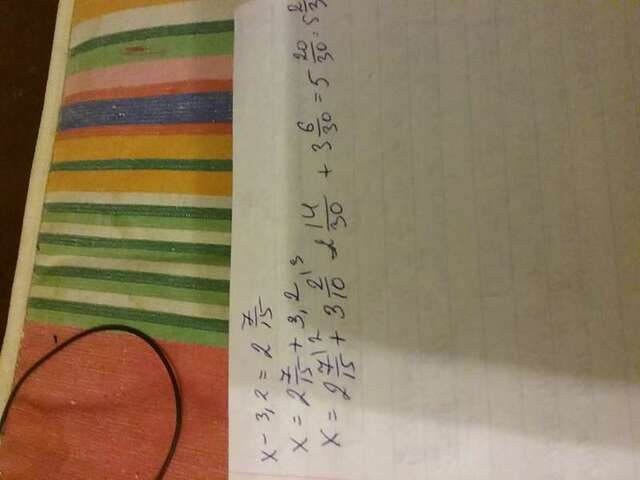 x - 3,2 = 2 7/15
x = 2 7/15 + 3,2
x = 2 7/15 ^(12 + 3 2/10 ^(13 = 2 14/30 + 3 6/30 = 5 20/30 = 5 2/3